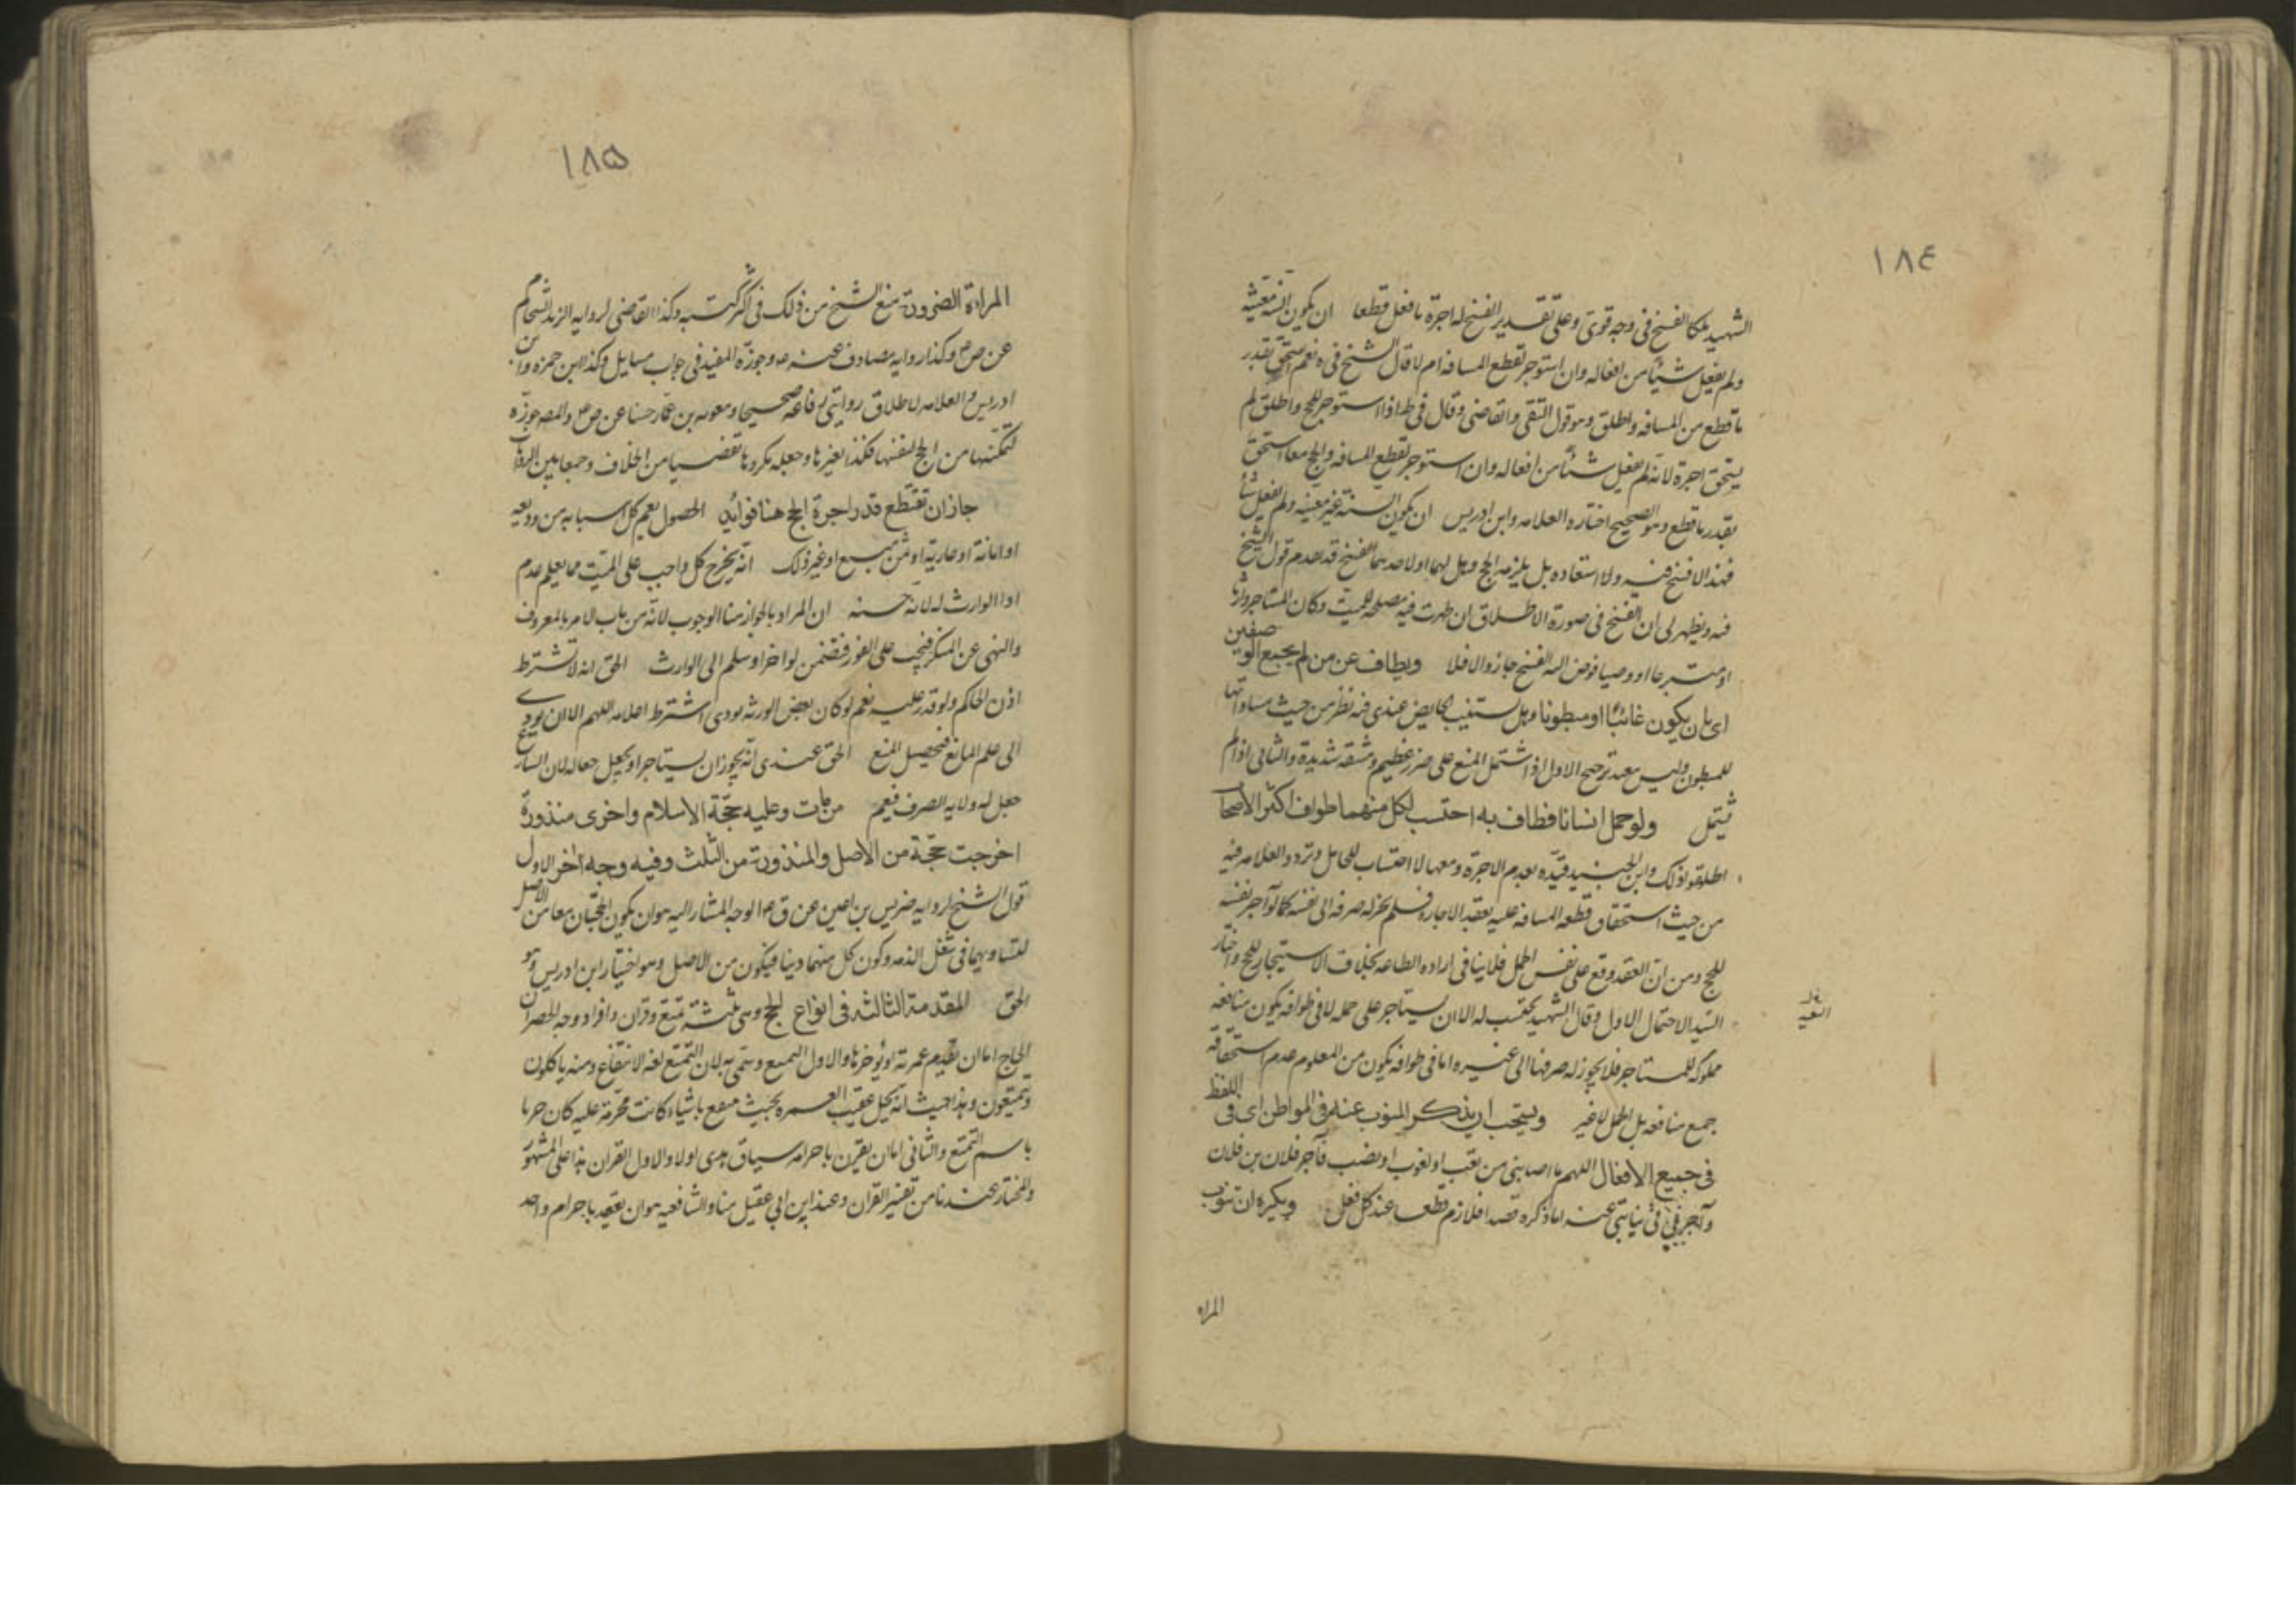 ١٨٤
الشهيد يملكا الفسخ في وجه قوي وعلى تقدير الفسخ له اجرة ما فعل قطعا ان يكون السنة معينة
ولم يفعل شيئا من افعاله وان استوجر لقطع المسافه ام لا قال الشيخ في ه نعم يستحق بقدر
ما قطع من المسافه واطلق وهو قول التقي والقاضي وقال في ط اذا استوجر للحج واطلق لم
يستحق اجرة لانه لم يفعل شيئا من افعاله وان استوجر لقطع المسافه والحج معا استحق
بقدر ما قطع وهو الصحيح اختاره العلامه وابن ادريس ان يكون السنة غير معينه ولم يفعل شيئا
فهذا لا فسخ فيه ولا استعاده بل يلزمه الحج وهل لهما او لاحدهما الفسخ قد تقدم قول الشيخ
فيه ويظهر لي ان الفسخ في صورة الاطلاق ان ظهرت فيه مصلحه للميت وكان المستاجر وارثا
او متبرعا او وصيا فوض اليه الفسخ جاز والا فلا ويطاف عن من لم يجمع الوصفين
اي بان يكون غائبا او مبطونا وهل يستنيب الحايض عندي فيه نظر من حيث مساواتها
للمبطون وليس ببعيد ترجيح الاول اذا اشتمل المنع على ضرر عظيم ومشقه شديدة والثاني اذا لم
يشتمل ولو حمل انسانا فطاف به احتسب لكل منهما طواف اكثر الاصحاب
اطلقوا ذلك وابن الجنيد قيده بعدم الاجرة ومعها لا احتساب للحامل وتردد العلامه فيه
من حيث استحقاق قطعه المسافه عليه بعقد الاجاره فلم يجز له صرفه الى نفسه كما لو آجر نفسه
للحج ومن ان العقد وقع على نفس الحمل فلا ينافي اراده الطاعه بخلاف الاستيجار للحج واختار
السيد الاحتمال الاول وقال الشهيد يحتسب له الا ان يستاجر على حمله لا في طوافه يكون منافعه
مملوكه للمستاجر فلا يجوز له صرفها الى غيره اما في طوافه يكون من المعلوم عدم استحقاقه
جميع منافعه بل الحمل لا غير ويستحب ان يذكر المنوب عنه في المواطن اي في اللفظ
في جميع الافعال اللهم ما اصابني من تعب او لغوب او نصب فآجر فلان بن فلان
وآجرني في نيابتي عنه اما ذكره قصدا فلازم قطعا عند كل فعل ويكره ان تنوب
المراه
١٨٥
المراة الضرورة منع الشيخ من ذلك في اكثر كتبه وكذا القاضي لروايه الزيد الشحام
عن ص ع وكذا روايه مصادف عنه ع وجوزه المفيد في جواب مسايل وكذا ابن حمزه وابن
ادريس والعلامه لاطلاق روايتي رفاعه صحيحا ومعويه بن عمار حسنا عن ص ع والمصـ جوزه
لتمكنها من الحج لنفسها فكذا لغيرها وجعله مكروها تفصيا من الخلاف وجمعا بين الروايات
جاز ان تقتطع قدر اجرة الحج هنا فوايد الحصول يعم كل اسبابه من وديعه
او امانة او عارية او ثمن مبيع او غير ذلك انه يخرج كل واجب على الميت مما يعلم عدم
اداء الوارث له لانه حسنه ان المراد بالجواز هنا الوجوب لانه من باب الامر بالمعروف
والنهي عن المنكر فيجب على الفور فتضمن لو اخر او سلم الى الوارث الحق انه لا تشترط
اذن الحاكم ولو قدر عليه نعم لو كان بعض الورثه يودي اشترط اعلامه اللهم الا ان يودي
الى علم المانع فيحصل المنع الحق عندي انه يجوز ان يستاجر او يجعل جعاله لان الشارع
جعل له ولايه الصرف فيعم من مات وعليه حجة الاسلام واخرى منذورة
اخرجت حجة من الاصل والمنذورة من الثلث وفيه وجه اخر الاول
قول الشيخ لروايه ضريس بن اعين عن ق ع الوجه المشار اليه هو ان يكون الحجتان معا من الاصل
لتساويهما في شغل الذمه وكون كل منهما دينا فيكون من الاصل وهو اختيار ابن ادريس وهو
الحق المقدمة الثالثه في انواع الحج وهي ثلثة تمتع وقران وافراد وجه الحصر ان
الحاج اما ان يقدم عمرته او يؤخرها والاول التمتع وسمي به لان التمتع لغه الانتفاع ومنه ياكلون
ويتمتعون وهذا حيث انه يحل عقيب العمره بحيث يتمتع باشياء كانت محرمة عليه كان حريا
باسم التمتع والثاني اما ان يقرن باحرامه سياق هدي اولا والاول القران هذا على المشهور
والمختار عندنا من تفسير القران وعند ابن ابي عقيل منا والشافعيه هو ان يعقد باحرام واحد